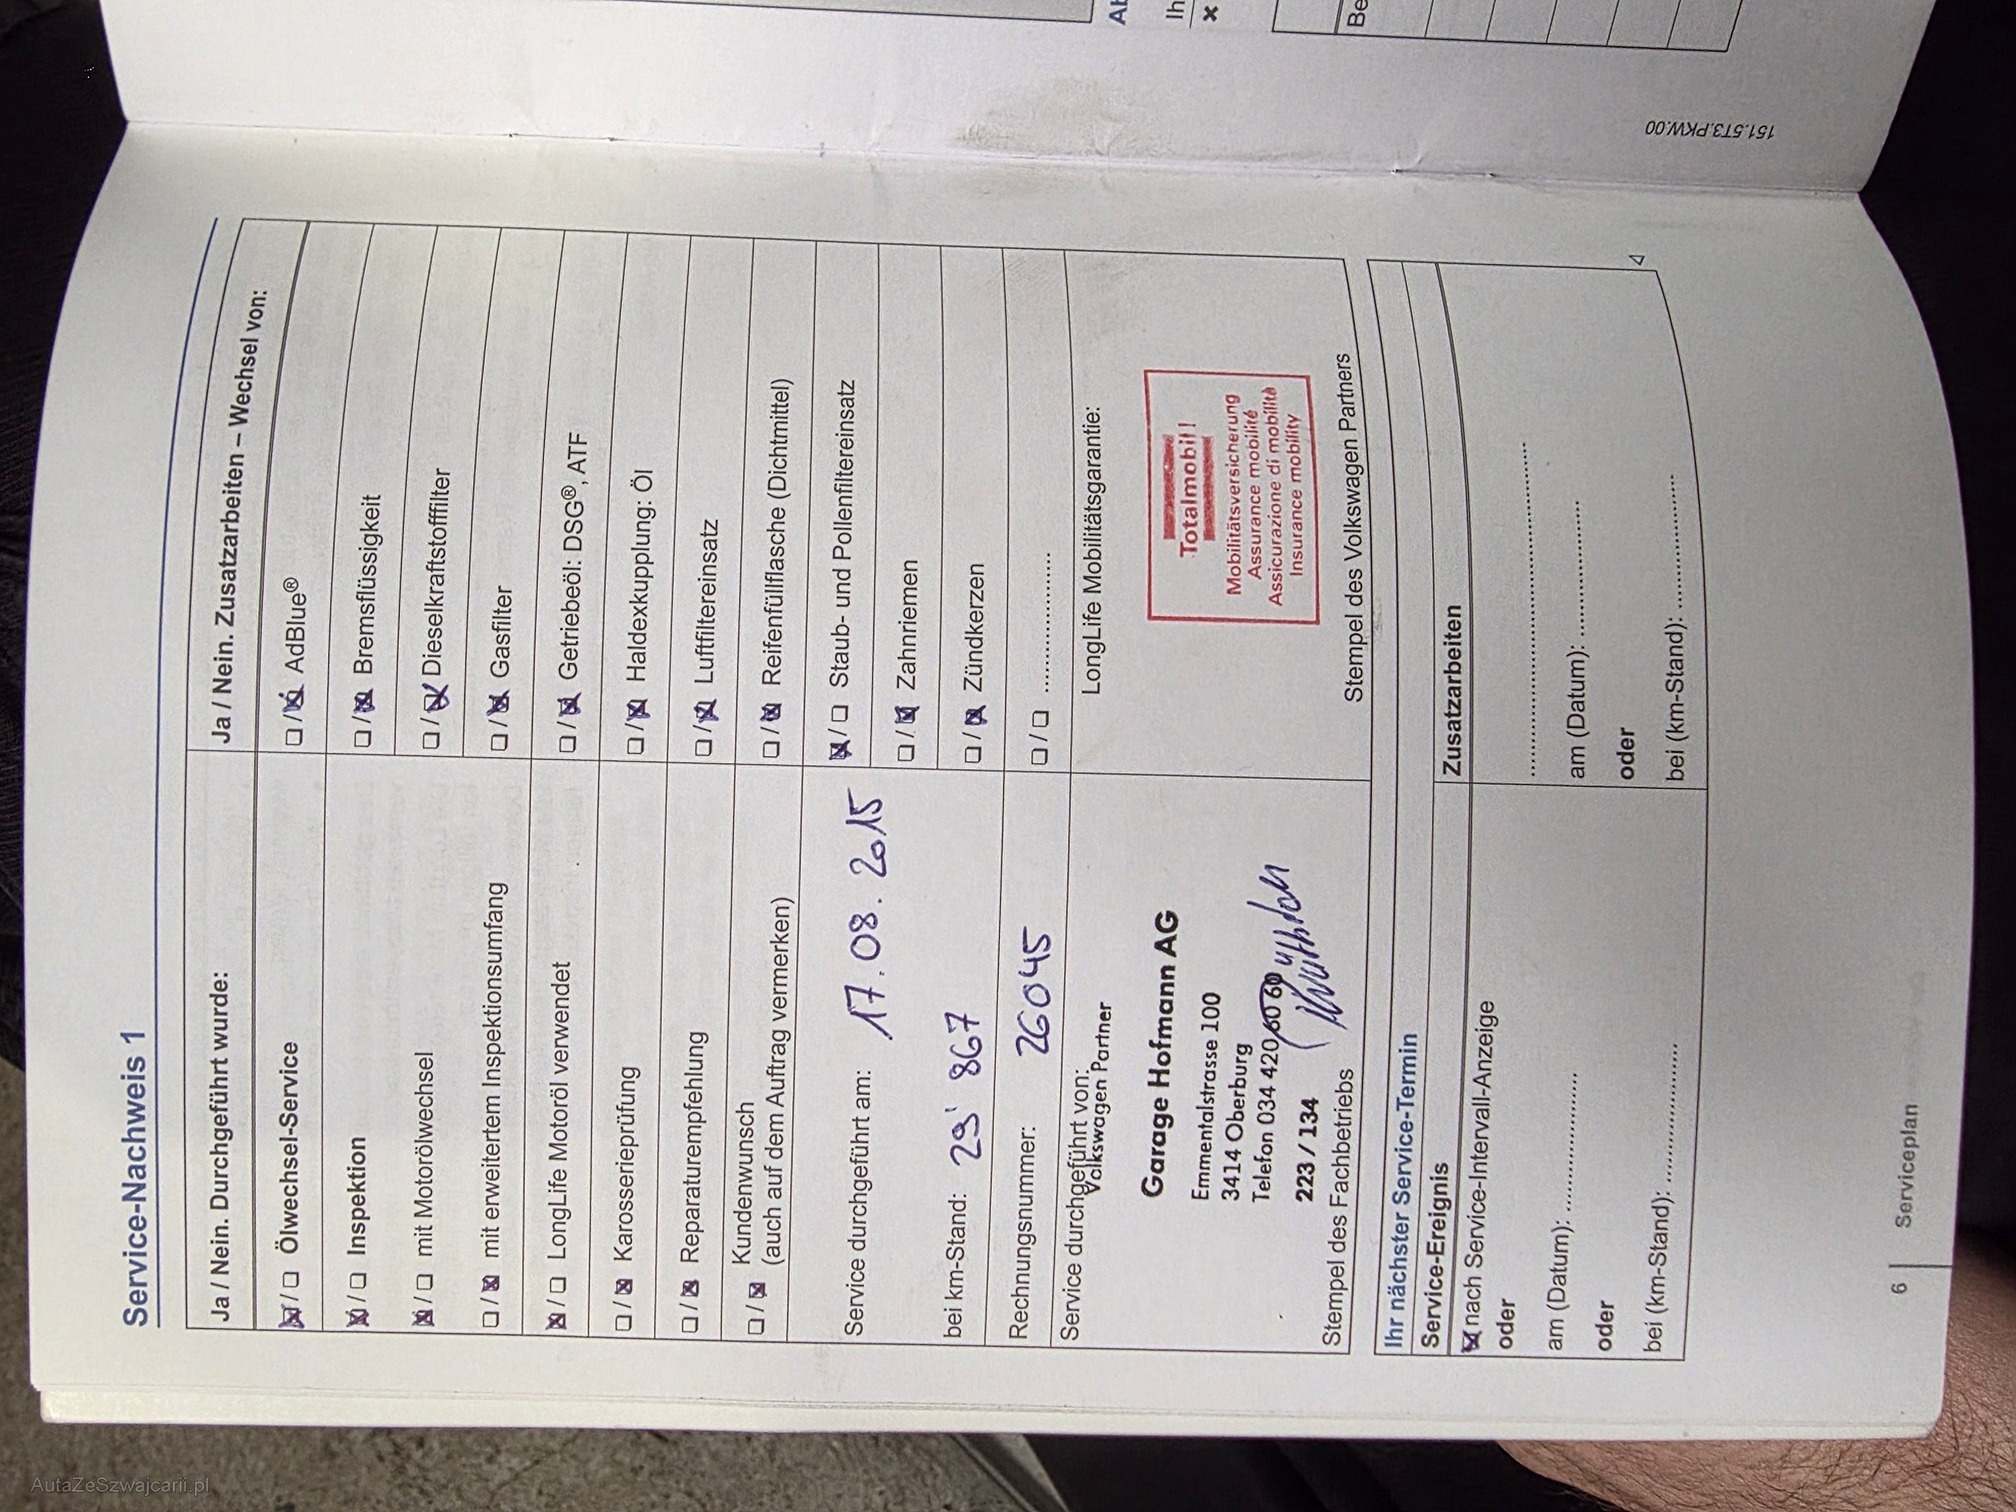 Service-Nachweis 1
Ja / Nein. Durchgeführt wurde:
☒ / ☐ Ölwechsel-Service
☒ / ☐ Inspektion
☒ / ☐ mit Motorölwechsel
☐ / ☒ mit erweitertem Inspektionsumfang
☒ / ☐ LongLife Motoröl verwendet
☐ / ☒ Karosserieprüfung
☐ / ☒ Reparaturempfehlung
☐ / ☒ Kundenwunsch
(auch auf dem Auftrag vermerken)
Service durchgeführt am: 17.08.2015
bei km-Stand: 29'867
Rechnungsnummer: 26045
Service durchgeführt von:
Volkswagen Partner
Garage Hofmann AG
Emmentalstrasse 100
3414 Oberburg
Telefon 034 420 60 60
223 / 134
Stempel des Fachbetriebs
Ja / Nein. Zusatzarbeiten – Wechsel von:
☐ / ☒ AdBlue®
☐ / ☒ Bremsflüssigkeit
☐ / ☒ Dieselkraftstofffilter
☐ / ☒ Gasfilter
☐ / ☒ Getriebeöl: DSG®, ATF
☐ / ☒ Haldexkupplung: Öl
☐ / ☒ Luftfiltereinsatz
☐ / ☒ Reifenfüllflasche (Dichtmittel)
☒ / ☐ Staub- und Pollenfiltereinsatz
☐ / ☒ Zahnriemen
☐ / ☒ Zündkerzen
☐ / ☐ ....................
LongLife Mobilitätsgarantie:
Totalmobil!
Mobilitätsversicherung
Assurance mobilité
Assicurazione di mobilità
Insurance mobility
Stempel des Volkswagen Partners
Ihr nächster Service-Termin
Service-Ereignis
☒ nach Service-Intervall-Anzeige
oder
am (Datum): ....................
oder
bei (km-Stand): ....................
Zusatzarbeiten
..................................................
am (Datum): ....................
oder
bei (km-Stand): ....................
6 Serviceplan
151.5T3.PKW.00
Ih
Be
AutaZeSzwajcarii.pl